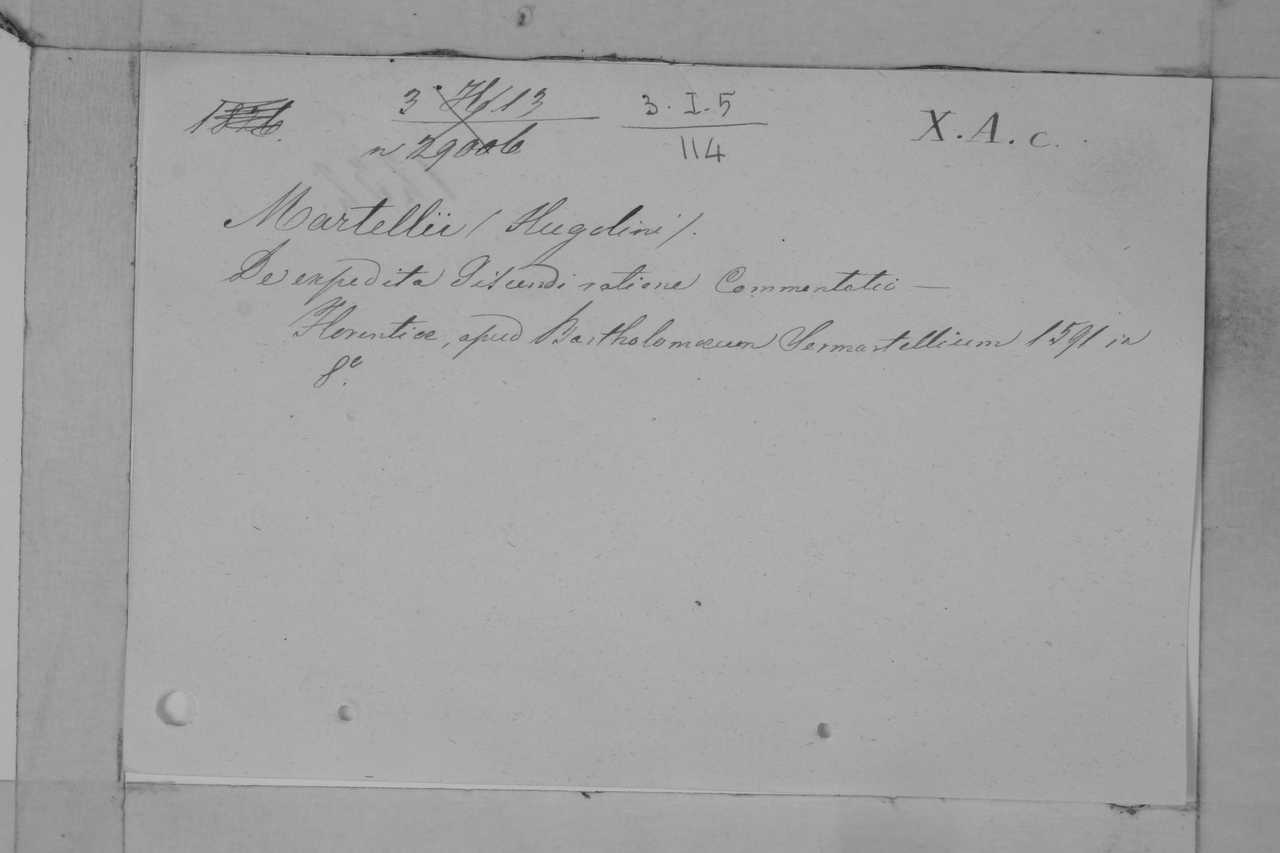 3. H 13 3. I. 5 X. A. c.
n 29006 114
Martellii (Hugolini).
De expedita discendi ratione Commentatio —
Florentiæ, apud Bartholomæum Sermartellium 1591 in
8.º